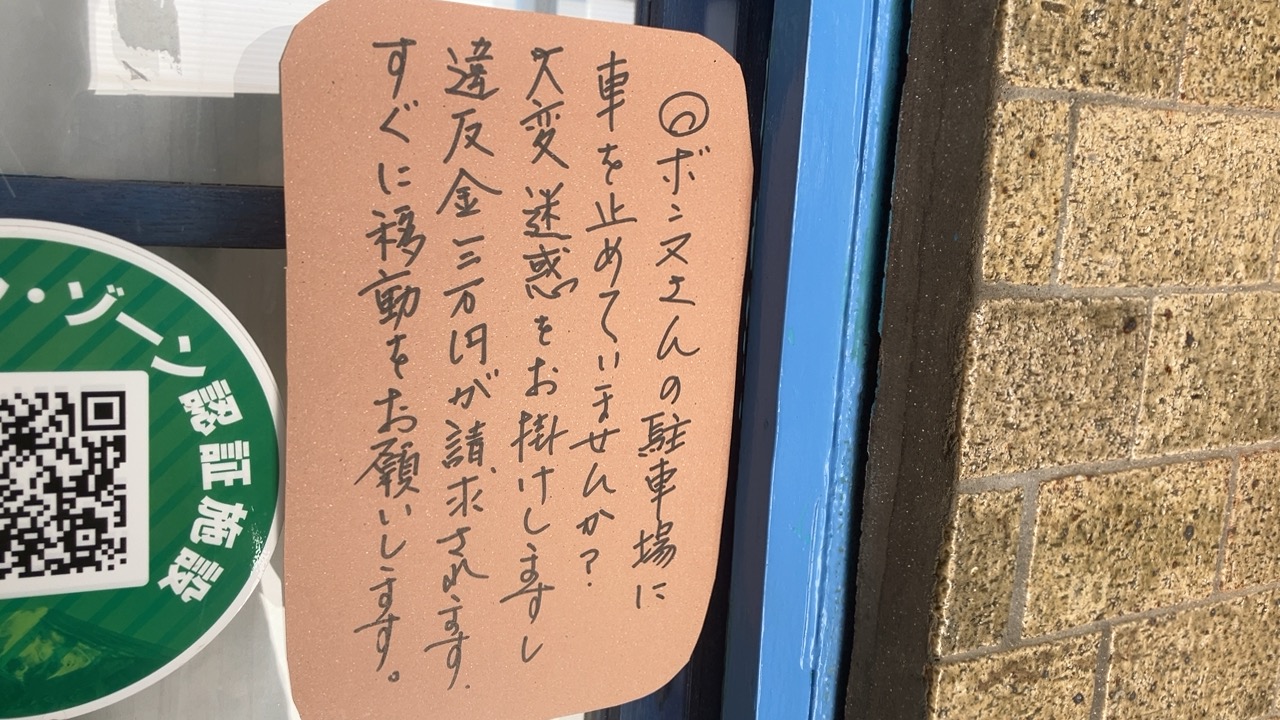 ◎ボンヌさんの駐車場に
車を止めていませんか?
大変迷惑をお掛けしますし
違反金三万円が請求されます.
すぐに移動をお願いします。
ン・ゾーン認証施設